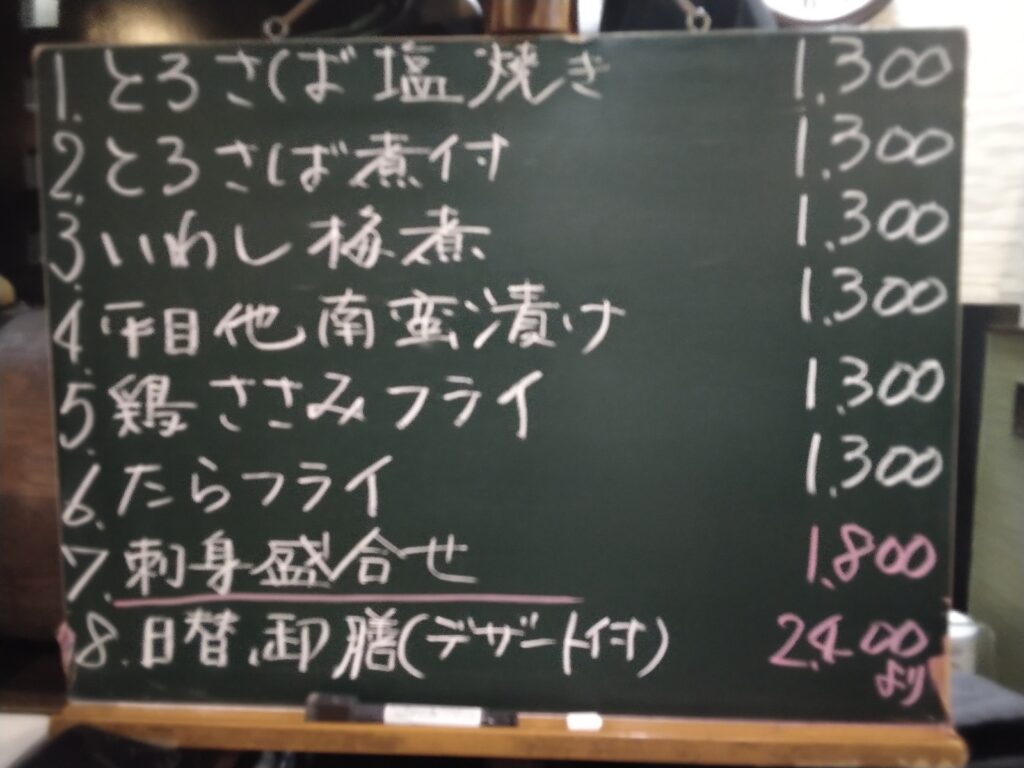 1. とろさば塩焼き 1,300
2. とろさば煮付 1,300
3. いわし梅煮 1,300
4. 平目他南蛮漬け 1,300
5. 鶏ささみフライ 1,300
6. たらフライ 1,300
7. 刺身盛合せ 1,800
8. 日替御膳(デザート付) 2,400
より